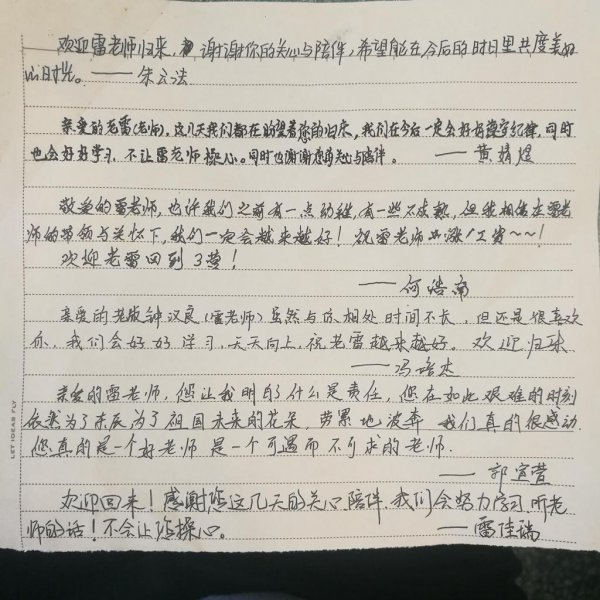 欢迎雷老师归来,谢谢你的关心与陪伴,希望能在今后的时日里共度美好
的时光。——朱云法
亲爱的老雷(老师),这几天我们都在盼望着您的归来,我们在今后一定会好好遵守纪律,同时
也会好好学习,不让雷老师操心。同时也谢谢您的关心与陪伴。——黄婧煜
敬爱的雷老师,也许我们之前有一点幼稚,有一些不成熟,但我相信在雷老
师的带领与关怀下,我们一定会越来越好!祝雷老师多涨工资~~!
欢迎老雷回到3营!
——何浩南
亲爱的老版钟汉良(雷老师)虽然与你相处时间不长,但还是很喜欢
你,我们会好好学习,天天向上,祝老雷越来越好。欢迎归来
——冯培杰
亲爱的雷老师,您让我明白了什么是责任,您在如此艰难的时刻
依然为了未来为了祖国未来的花朵,劳累地波奔 我们真的很感动.
您真的是一个好老师 是一个可遇而不可求的老师.
——郭宣萱
欢迎回来!感谢您这几天的关心陪伴.我们会努力学习.听老
师的话!不会让您操心。——雷佳瑞
LET IDEAS FLY